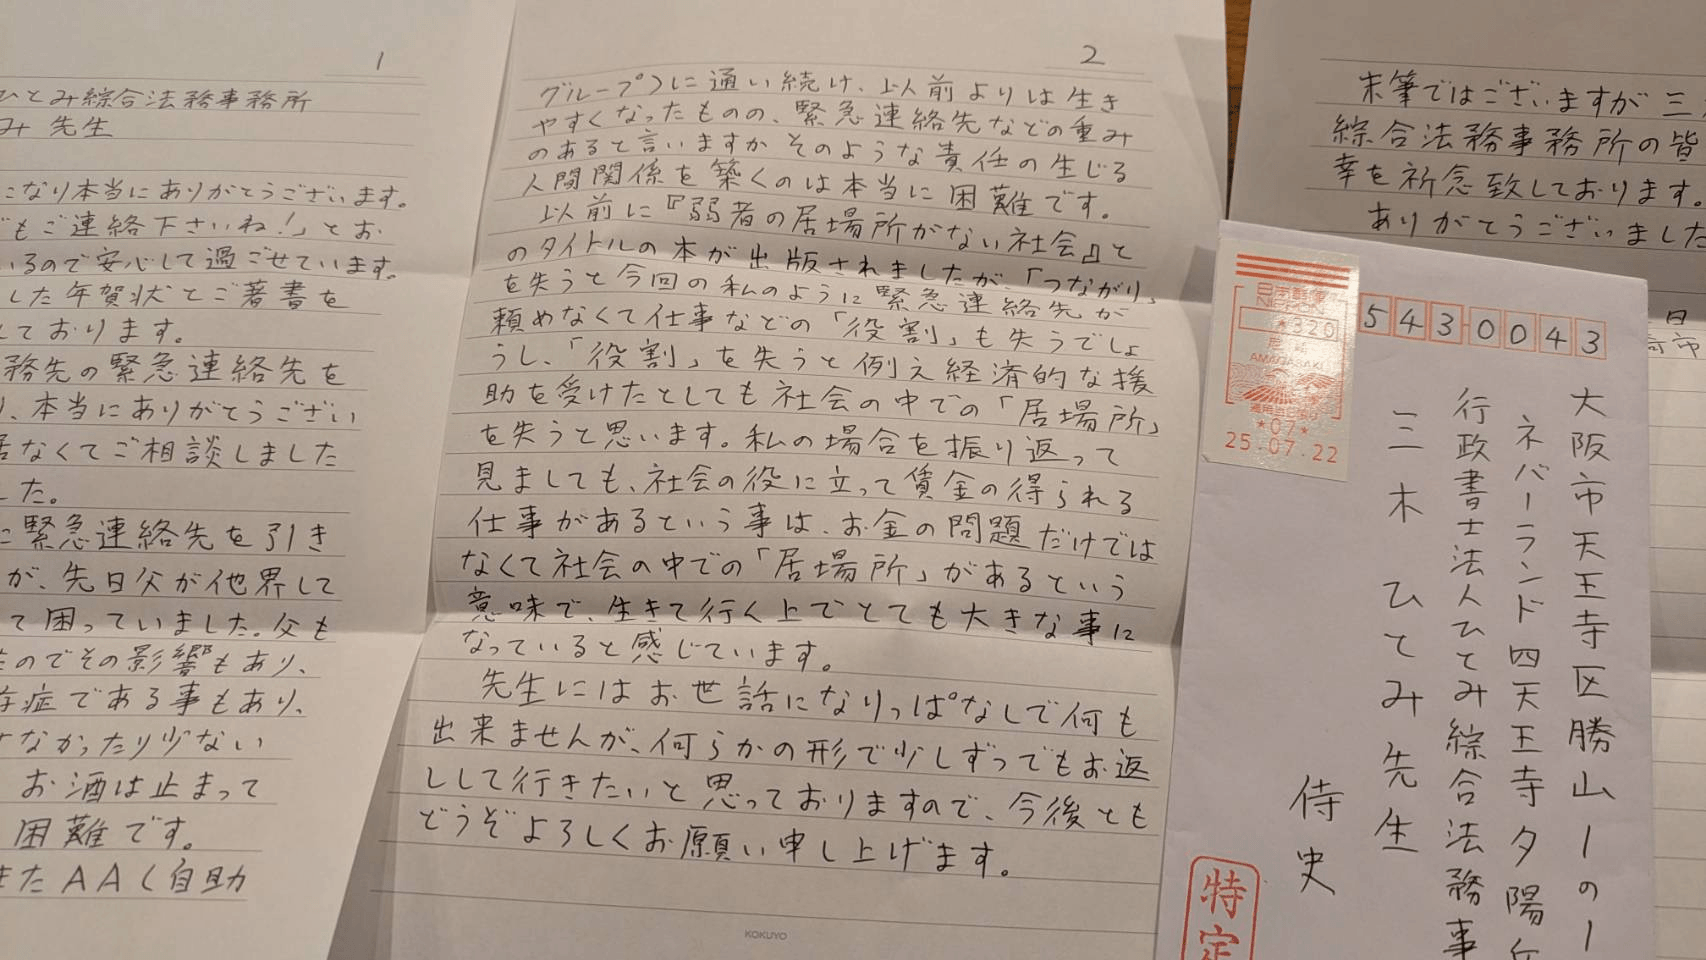 1
ひとみ綜合法務事務所
み 先生
になり本当にありがとうございます。
でもご連絡下さいね!」とお
いるので安心して過ごせています。
した年賀状とご著書を
しております。
務先の緊急連絡先を
り、本当にありがとうござい
居なくてご相談しました
した。
に緊急連絡先を引き
が、先日父が他界して
て困っていました。父も
なのでその影響もあり、
存症である事もあり、
なかったり少ない
お酒は止まって
困難です。
またAA(自助
2
グループ)に通い続け、以前よりは生き
やすくなったものの、緊急連絡先などの重み
のあると言いますかそのような責任の生じる
人間関係を築くのは本当に困難です。
以前に『弱者の居場所がない社会』と
のタイトルの本が出版されましたが、「つながり」
を失うと今回の私のように緊急連絡先が
頼めなくて仕事などの「役割」も失うでしょ
うし、「役割」を失うと例え経済的な援
助を受けたとしても社会の中での「居場所」
を失うと思います。私の場合を振り返って
見ましても、社会の役に立って賃金の得られる
仕事があるという事は、お金の問題だけでは
なくて社会の中での「居場所」があるという
意味で、生きて行く上でとても大きな事に
なっていると感じています。
先生にはお世話になりっぱなしで何も
出来ませんが、何らかの形で少しずつでもお返
しして行きたいと思っておりますので、今後とも
どうぞよろしくお願い申し上げます。
KOKUYO
末筆ではございますが三
綜合法務事務所の皆
幸を祈念致しております。
ありがとうございました
日本郵便
NIPPON
*320
尼崎
AMAGASAKI
*07*
25.07.22
5430043
大阪市天王寺区勝山1の1
ネバーランド四天王寺夕陽丘
行政書士法人ひとみ綜合法務事
三木ひとみ先生
侍史
特定